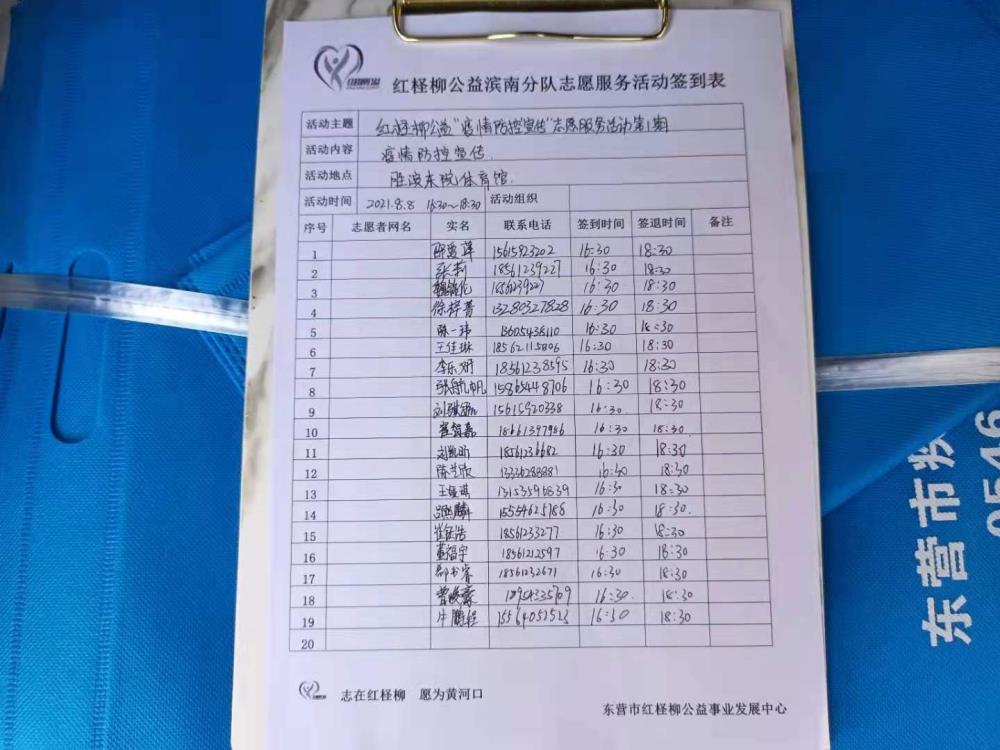 红柽柳公益滨南分队志愿服务活动签到表
活动主题 红柽柳公益"疫情防控宣传"志愿服务活动第1期
活动内容 疫情防控宣传.
活动地点 胜滨东院体育馆.
活动时间 2021.8.8 16:30~18:30 活动组织
序号 志愿者网名 实名 联系电话 签到时间 签退时间 备注
1 15615923202 16:30 18:30
2 张莉 18561239227 16:30 18:30
3 16:30 18:30
4 徐梓菁 13280327828 16:30 18:30
5 陈一玮 13605438110 16:30 18:30
6 王佳琳 18562115806 16:30 18:30
7 李乐妍 18561238595 16:30 18:30
8 张航帆 15865448706 16:30 18:30
9 15615920338 16:30. 18:30
10 崔智嘉 18661397986 16:30 18:30
11 刘凯昕 18561236682 16:30 18:30
12 陈艺欣 13336288881 16:30 18:30
13 16:30 18:30
14 15554625788 16:30 18:30.
15 18561233277 16:30 18:30
16 董福宇 18561212597 16:30 18:30
17 郭书睿 18561232671 16:30 18:30
18 16:30. 18:30
19 牛鹏程 15564052523 16:30 18:30
20
志在红柽柳 愿为黄河口
东营市红柽柳公益事业发展中心
东营市
0546